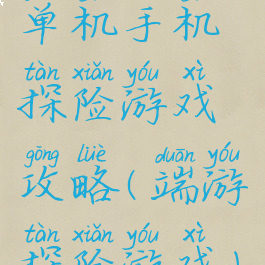 单机手机
tàn xiǎn yóu xì
探险游戏
gōng lüè duān yóu
攻略(端游
tàn xiǎn yóu xì
探险游戏)